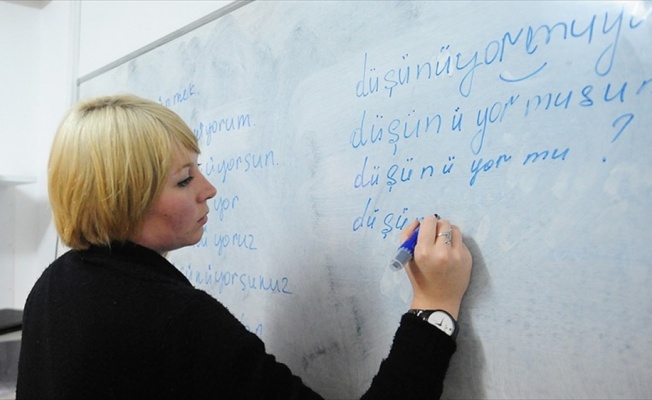 nmek
üyorum
üyorsun
yor
yoruz
nüyorsunuz
düşünüyor muyu
düşünüyor musun
düşünüyor mu ?
düşün